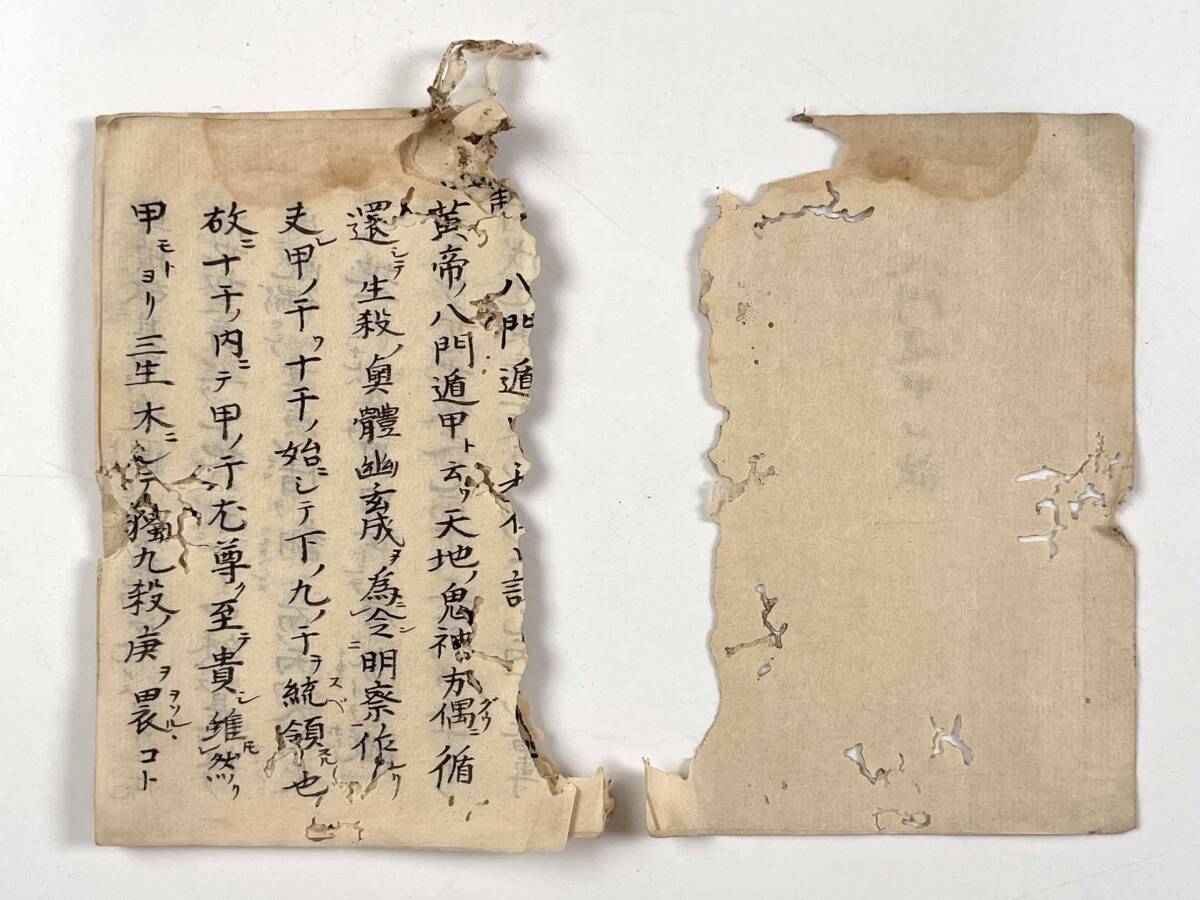 八門遁
黄帝ノ八門遁甲ト云ハ天地ノ鬼神方偶グウニ循
還シテ生殺ノ奥體幽玄成ヲ為ニ令シ明察作ナリ
夫レ甲ノ干ハ十干ノ始ニシテ下ノ九ノ干ヲ統スベ領スル也
故ニ十干ノ内ニテ甲ノ干尤尊ク至テ貴シ雖モ然リ
甲モトヨリ三生木ニシテ獨九殺ノ庚ヲ畏ヲソルヽコト